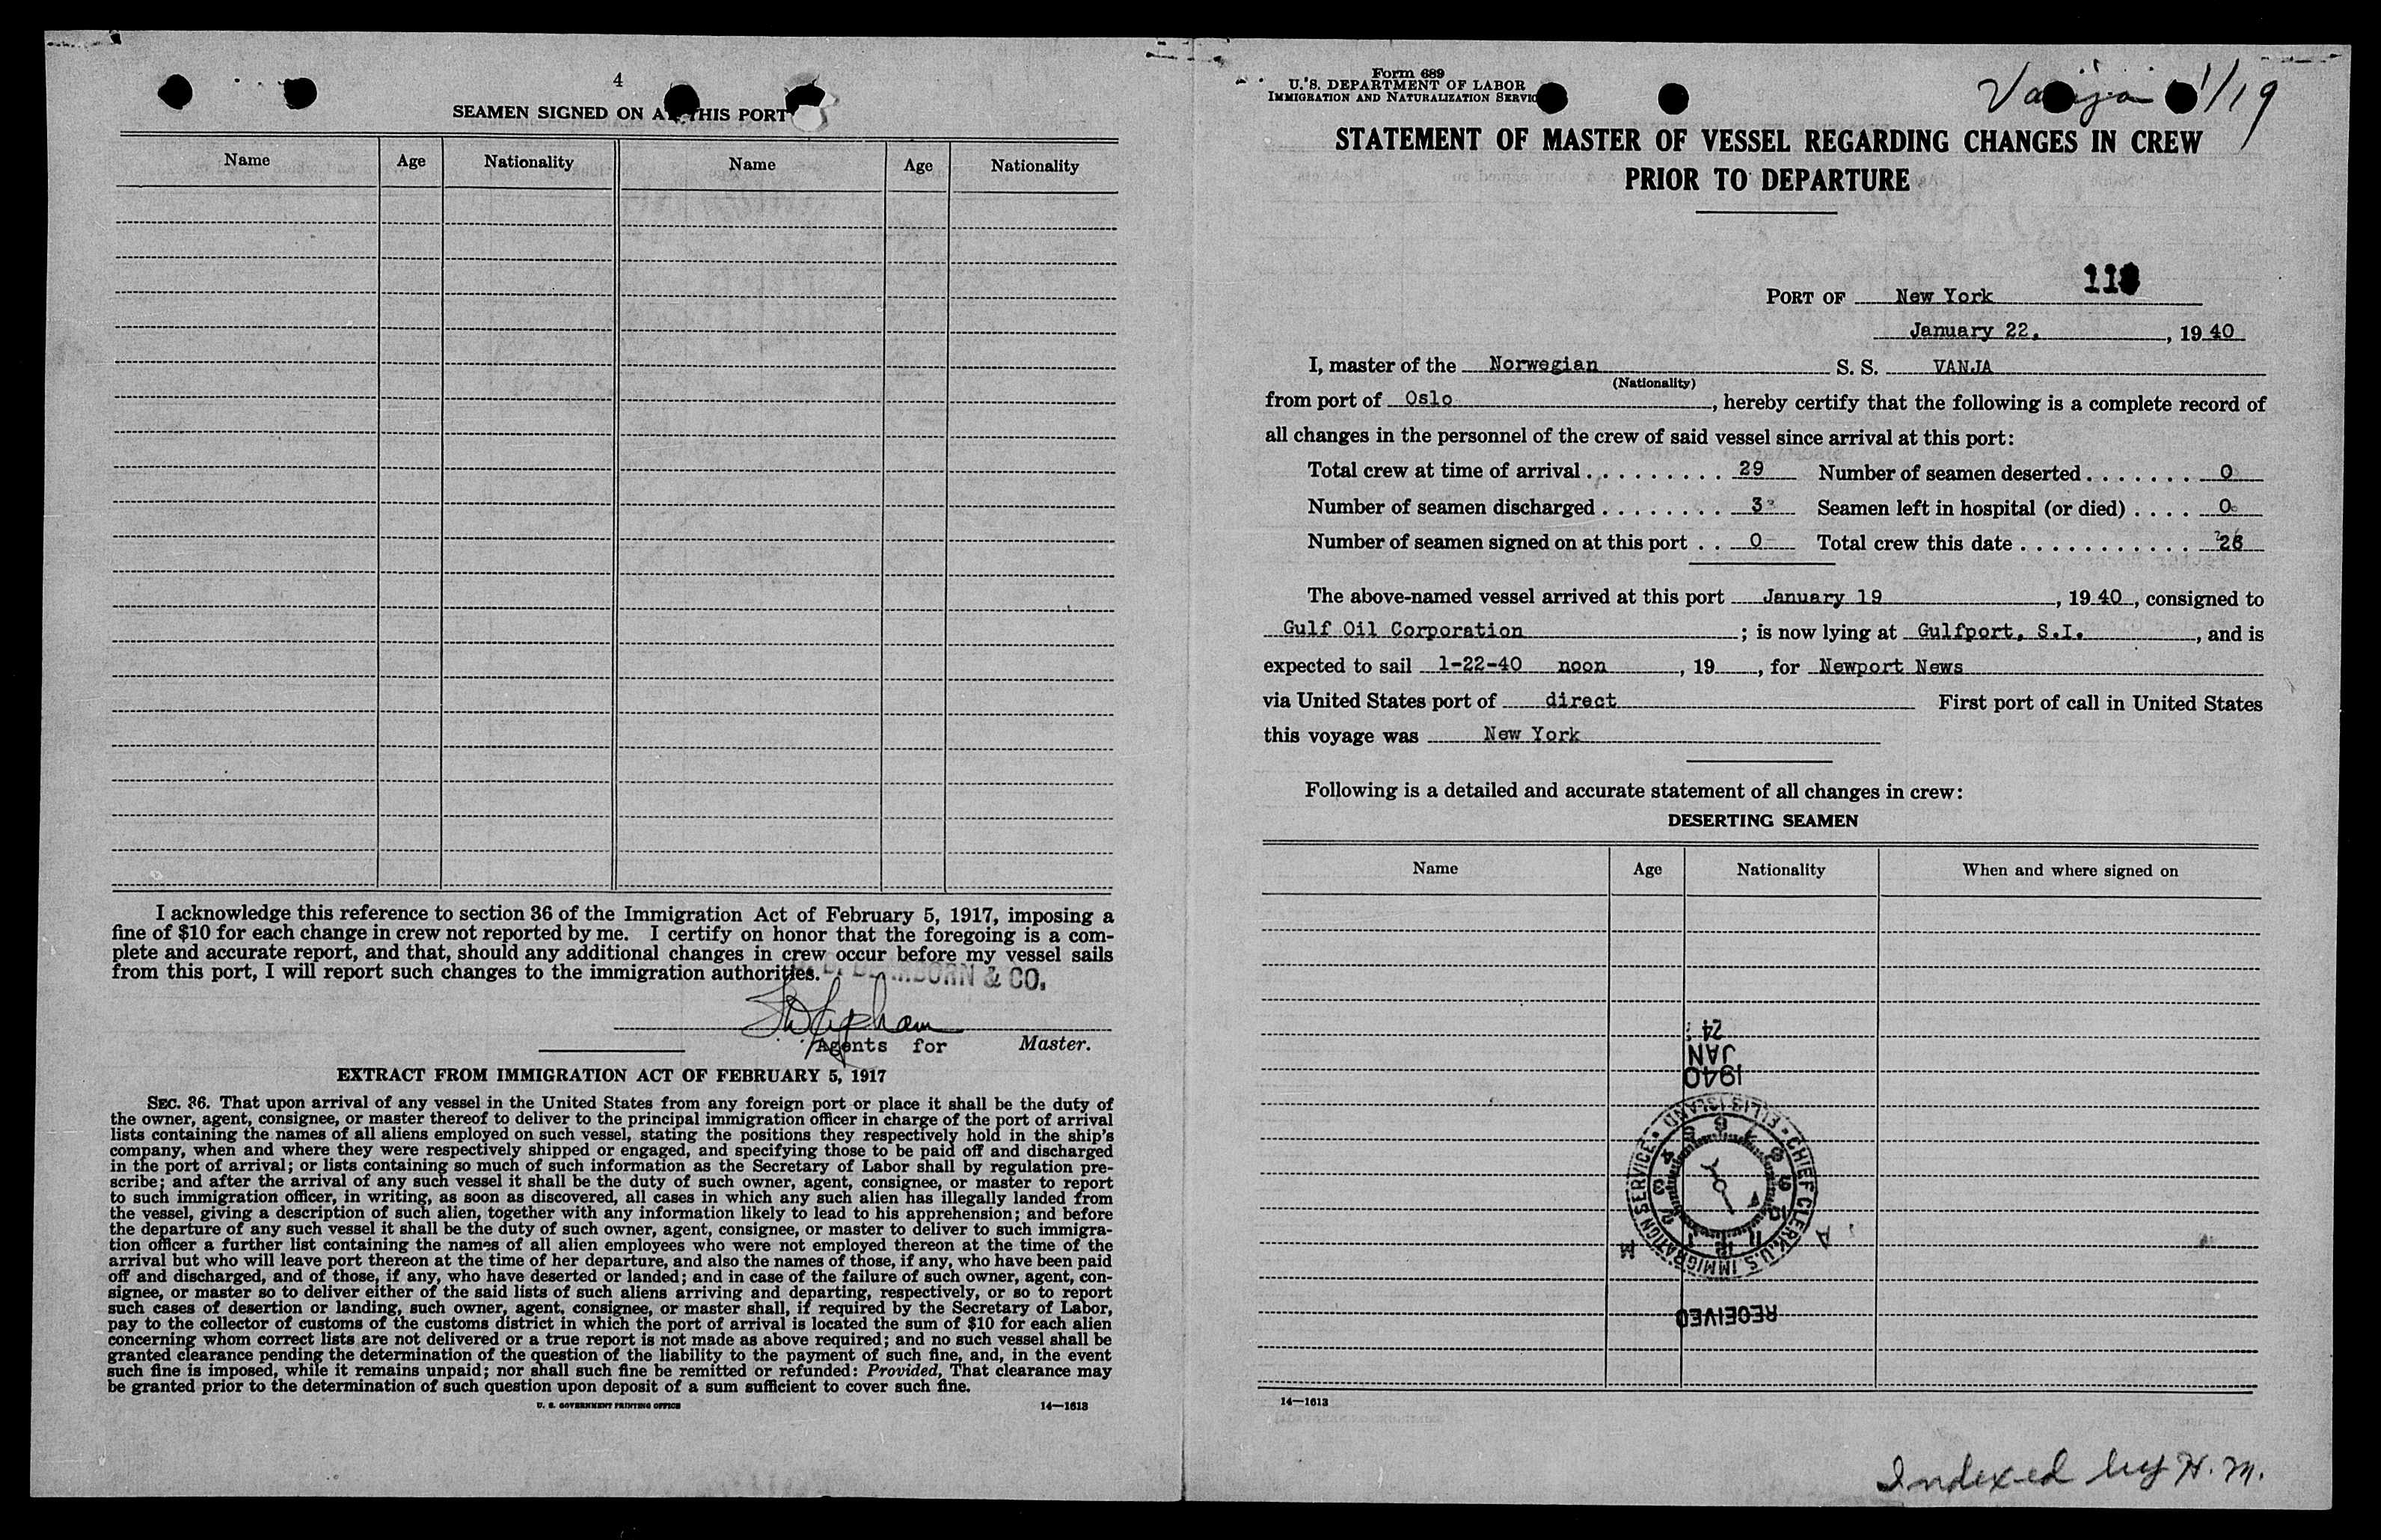 4
SEAMEN SIGNED ON AT THIS PORT
Name Age Nationality Name Age Nationality
I acknowledge this reference to section 36 of the Immigration Act of February 5, 1917, imposing a
fine of $10 for each change in crew not reported by me. I certify on honor that the foregoing is a com-
plete and accurate report, and that, should any additional changes in crew occur before my vessel sails
from this port, I will report such changes to the immigration authorities.
& CO.
Agents for Master.
EXTRACT FROM IMMIGRATION ACT OF FEBRUARY 5, 1917
SEC. 36. That upon arrival of any vessel in the United States from any foreign port or place it shall be the duty of
the owner, agent, consignee, or master thereof to deliver to the principal immigration officer in charge of the port of arrival
lists containing the names of all aliens employed on such vessel, stating the positions they respectively hold in the ship's
company, when and where they were respectively shipped or engaged, and specifying those to be paid off and discharged
in the port of arrival; or lists containing so much of such information as the Secretary of Labor shall by regulation pre-
scribe; and after the arrival of any such vessel it shall be the duty of such owner, agent, consignee, or master to report
to such immigration officer, in writing, as soon as discovered, all cases in which any such alien has illegally landed from
the vessel, giving a description of such alien, together with any information likely to lead to his apprehension; and before
the departure of any such vessel it shall be the duty of such owner, agent, consignee, or master to deliver to such immigra-
tion officer a further list containing the names of all alien employees who were not employed thereon at the time of the
arrival but who will leave port thereon at the time of her departure, and also the names of those, if any, who have been paid
off and discharged, and of those, if any, who have deserted or landed; and in case of the failure of such owner, agent, con-
signee, or master so to deliver either of the said lists of such aliens arriving and departing, respectively, or so to report
such cases of desertion or landing, such owner, agent, consignee, or master shall, if required by the Secretary of Labor,
pay to the collector of customs of the customs district in which the port of arrival is located the sum of $10 for each alien
concerning whom correct lists are not delivered or a true report is not made as above required; and no such vessel shall be
granted clearance pending the determination of the question of the liability to the payment of such fine, and, in the event
such fine is imposed, while it remains unpaid; nor shall such fine be remitted or refunded: Provided, That clearance may
be granted prior to the determination of such question upon deposit of a sum sufficient to cover such fine.
U. S. GOVERNMENT PRINTING OFFICE 14—1613
Form 689
U. S. DEPARTMENT OF LABOR
IMMIGRATION AND NATURALIZATION SERVICE
Vanja 1/19
STATEMENT OF MASTER OF VESSEL REGARDING CHANGES IN CREW
PRIOR TO DEPARTURE
PORT OF New York
January 22, , 19 40
I, master of the Norwegian S. S. VANJA
(Nationality)
from port of Oslo , hereby certify that the following is a complete record of
all changes in the personnel of the crew of said vessel since arrival at this port:
Total crew at time of arrival . . . . . . . . . 29 Number of seamen deserted . . . . . . . 0
Number of seamen discharged . . . . . . . . 3 Seamen left in hospital (or died) . . . . 0
Number of seamen signed on at this port . . 0 Total crew this date . . . . . . . . . . . . 26
The above-named vessel arrived at this port January 19 , 19 40 , consigned to
Gulf Oil Corporation ; is now lying at Gulfport, S.I. , and is
expected to sail 1-22-40 noon , 19 , for Newport News
via United States port of direct First port of call in United States
this voyage was New York
Following is a detailed and accurate statement of all changes in crew:
DESERTING SEAMEN
Name Age Nationality When and where signed on
RECEIVED
CHIEF CLERK, U.S. IMMIGRATION SERVICE • ELLIS ISLAND •
1940
JAN
24
14—1613
Indexed by H. M.